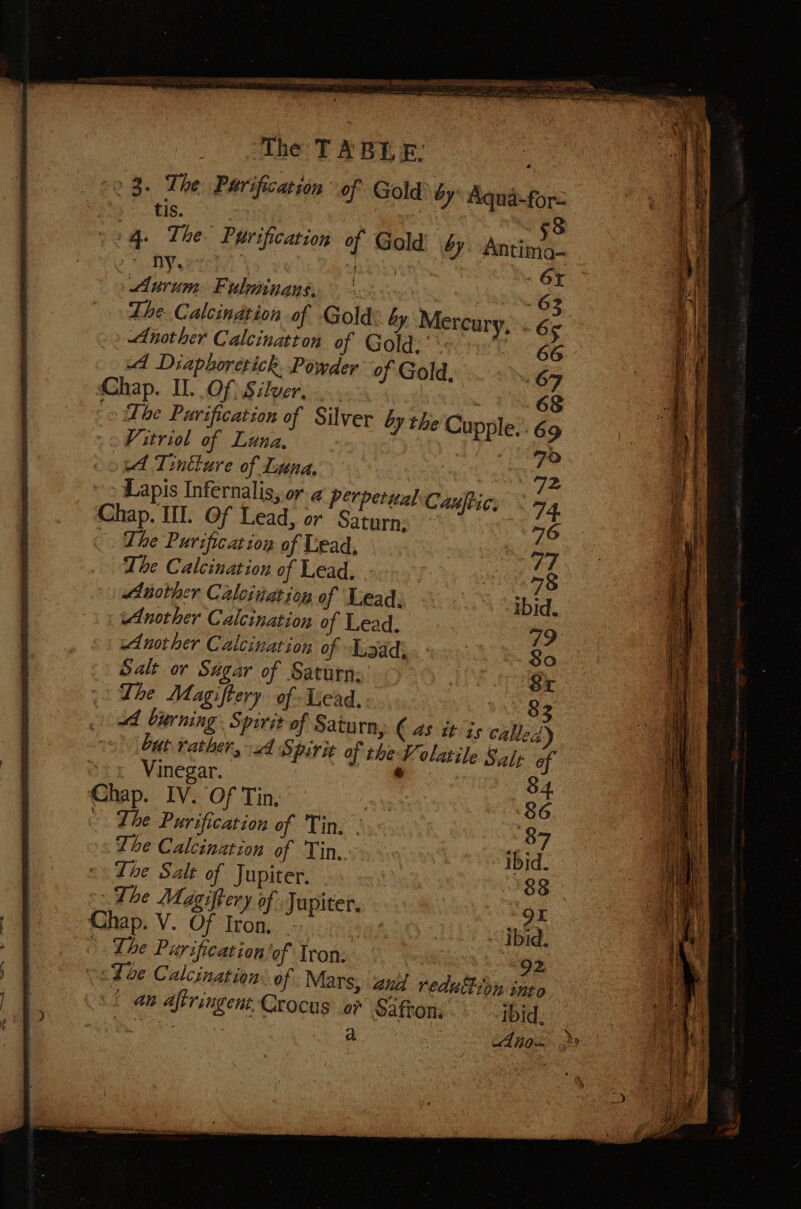 The TABLE.
3. The Purification of Gold by Aqua-for-
tis. 58
4. The Purification of Gold by Antimo-
ny. 61
Aurum Fulminans. 63
The Calcination of Gold by Mercury. 65
Another Calcination of Gold. 66
A Diaphoretick Powder of Gold. 67
Chap. II. Of Silver. 68
The Purification of Silver by the Cupple. 69
Vitriol of Luna. 70
A Tincture of Luna. 72
Lapis Infernalis, or a perpetual Caustic. 74
Chap. III. Of Lead, or Saturn. 76
The Purification of Lead, 77
The Calcination of Lead. 78
Another Calcination of Lead. ibid.
Another Calcination of Lead. 79
Another Calcination of Lead. 80
Salt or Sugar of Saturn. 81
The Magistery of Lead. 83
A burning Spirit of Saturn, (as it is called)
but rather, A Spirit of the Volatile Salt of
Vinegar. 84
Chap. IV. Of Tin. 86
The Purification of Tin. 87
The Calcination of Tin. ibid.
The Salt of Jupiter. 88
The Magistery of Jupiter. 91
Chap. V. Of Iron. ibid.
The Purification of Iron. 92
The Calcination of Mars, and reduction into
an astringent Crocus or Saffron. ibid.
a Ano-